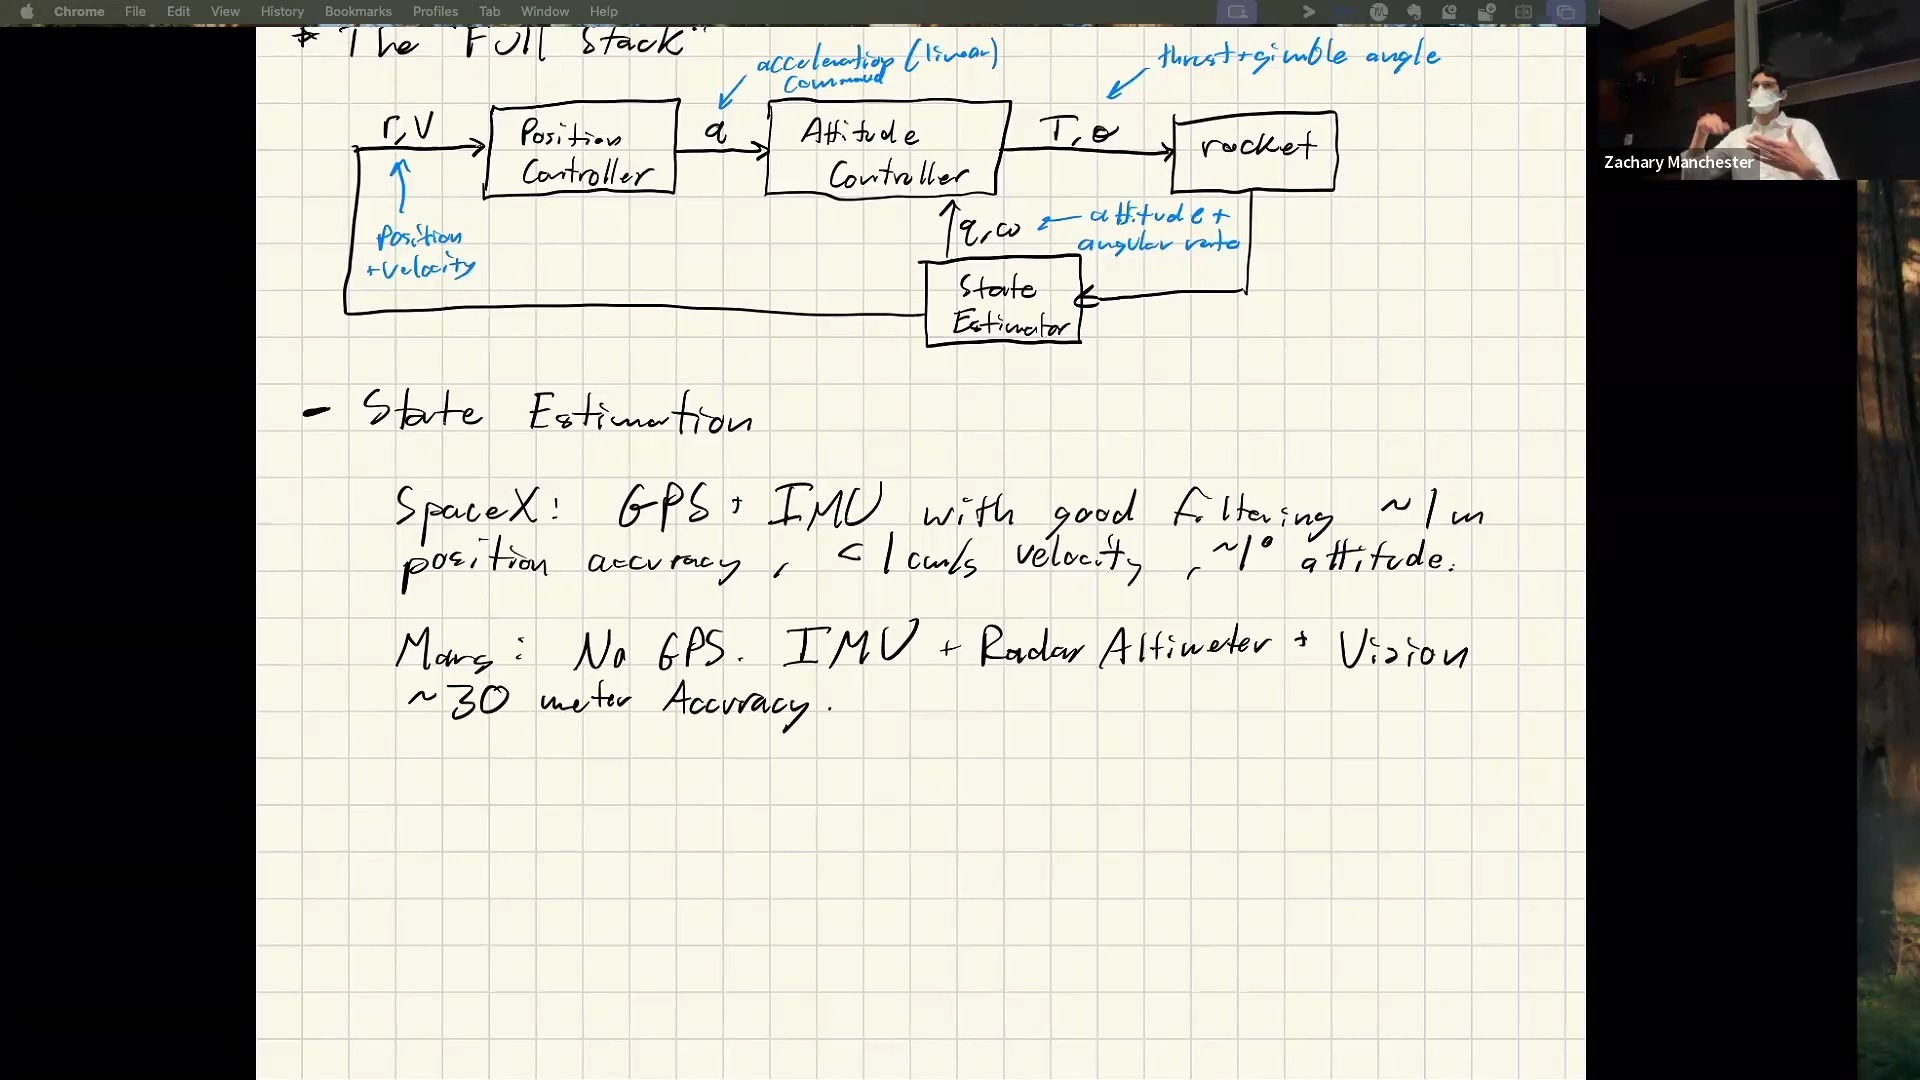 Chrome File Edit View History Bookmarks Profiles Tab Window Help
* The "Full Stack"
acceleration (linear)
command
thrust + gimble angle
r, v
Position
Controller
a
Attitude
Controller
T, θ
rocket
Zachary Manchester
position
+ velocity
q, ω
attitude +
angular rate
State
Estimator
- State Estimation
SpaceX: GPS + IMU with good filtering ~1m
position accuracy, < 1 cm/s velocity, ~1° attitude.
Mars: No GPS. IMU + Radar Altimeter + Vision
~30 meter Accuracy.